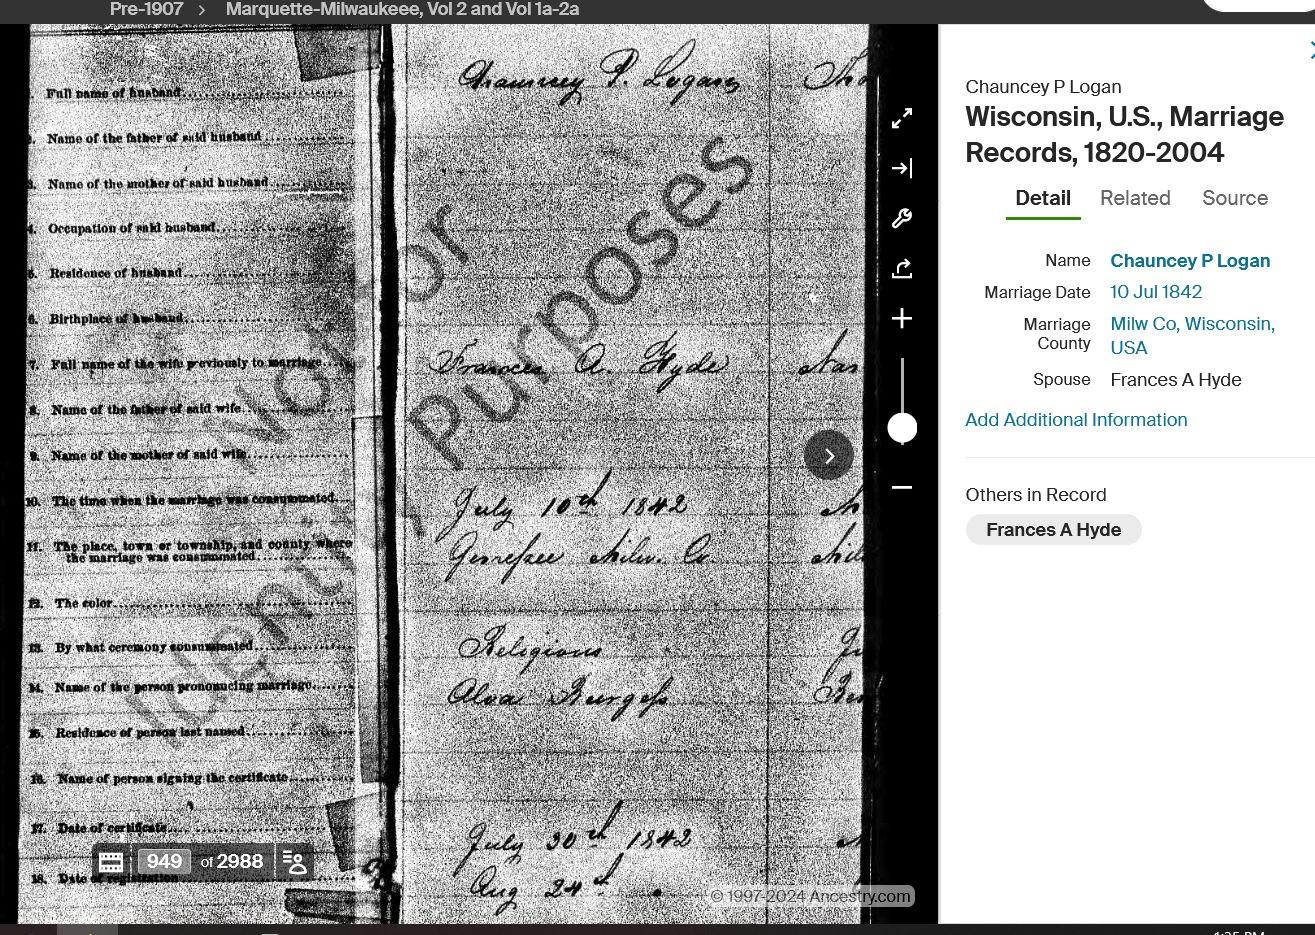 Pre-1907 > Marquette-Milwaukeee, Vol 2 and Vol 1a-2a
Full name of husband Chauncey P. Logan
Name of the father of said husband
3. Name of the mother of said husband
4. Occupation of said husband
5. Residence of husband
6. Birthplace of husband
7. Full name of the wife previously to marriage Frances A. Hyde
8. Name of the father of said wife
9. Name of the mother of said wife
10. The time when the marriage was consummated July 10th 1842
11. The place, town or township, and county where
the marriage was consummated Gennessee Milw. Co
12. The color
13. By what ceremony consummated Religious
14. Name of the person pronouncing marriage Alva Burgess
15. Residence of person last named
16. Name of person signing the certificate
17. Date of certificate July 30th 1842
18. Date of registration Aug 24th
Not For
Identi
Purposes
949 of 2988
© 1997-2024 Ancestry.com
Chauncey P Logan
Wisconsin, U.S., Marriage
Records, 1820-2004
Detail Related Source
Name Chauncey P Logan
Marriage Date 10 Jul 1842
Marriage County Milw Co, Wisconsin,
USA
Spouse Frances A Hyde
Add Additional Information
Others in Record
Frances A Hyde